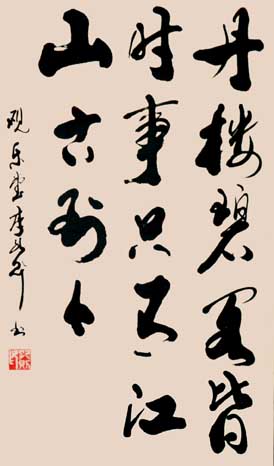 丹楼碧阁皆
时事只有江
山古到今
观乐堂李 书